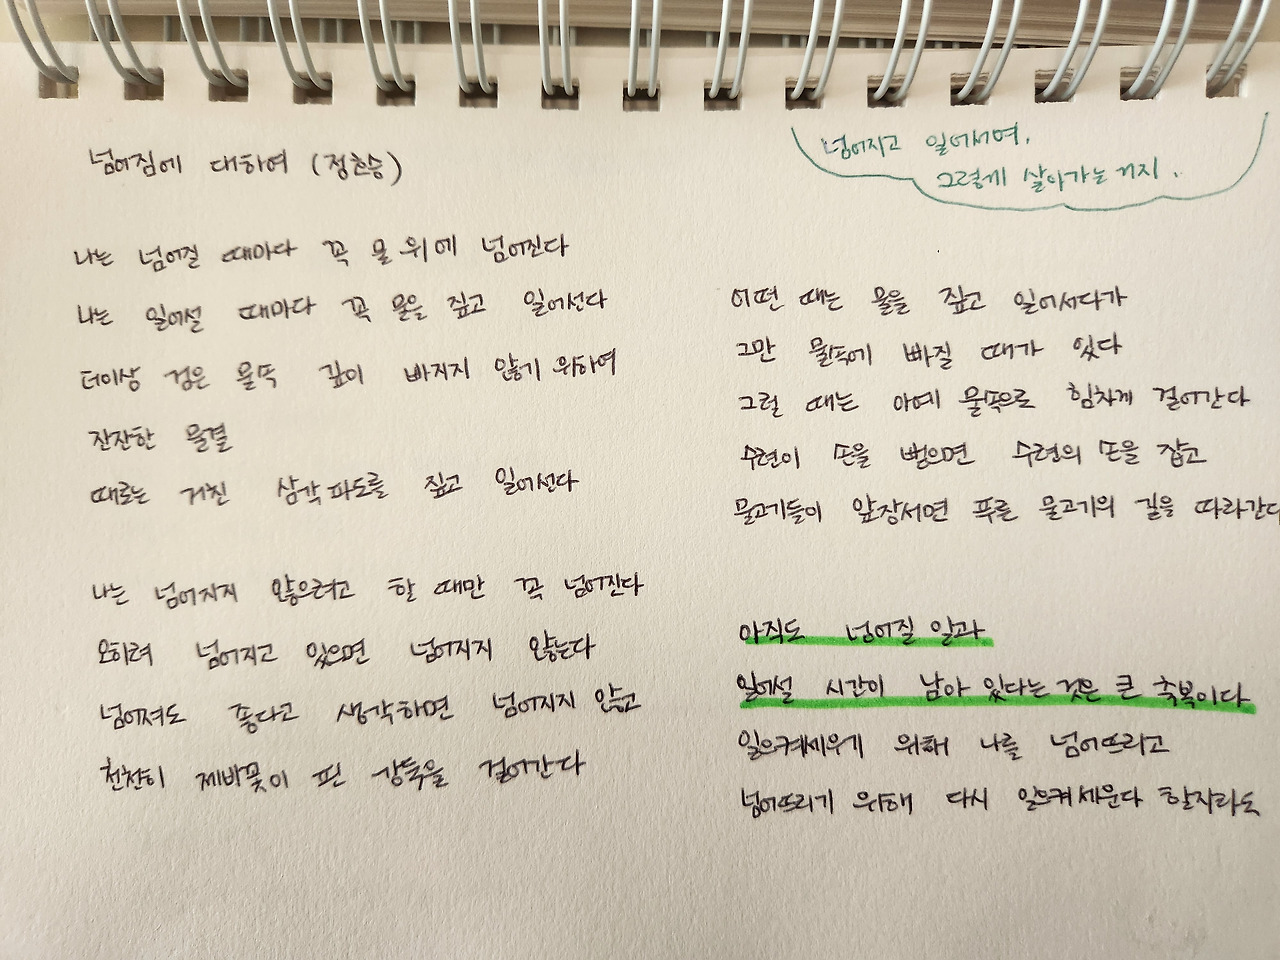 넘어짐에 대하여 (정호승)
넘어지고 일어서며,
그렇게 살아가는 거지.
나는 넘어질 때마다 꼭 물 위에 넘어진다
나는 일어설 때마다 꼭 물을 짚고 일어선다
더이상 검은 물속 깊이 빠지지 않기 위하여
잔잔한 물결
때로는 거친 삼각파도를 짚고 일어선다
나는 넘어지지 않으려고 할 때만 꼭 넘어진다
오히려 넘어지고 있으면 넘어지지 않는다
넘어져도 좋다고 생각하면 넘어지지 않고
천천히 제비꽃이 핀 강둑을 걸어간다
어떤 때는 물을 짚고 일어서다가
그만 물속에 빠질 때가 있다
그럴 때는 아예 물속으로 힘차게 걸어간다
수련이 손을 뻗으면 수련의 손을 잡고
물고기들이 앞장서면 푸른 물고기의 길을 따라간다
아직도 넘어질 일과
일어설 시간이 남아 있다는 것은 큰 축복이다
일으켜세우기 위해 나를 넘어뜨리고
넘어뜨리기 위해 다시 일으켜세운다 할지라도